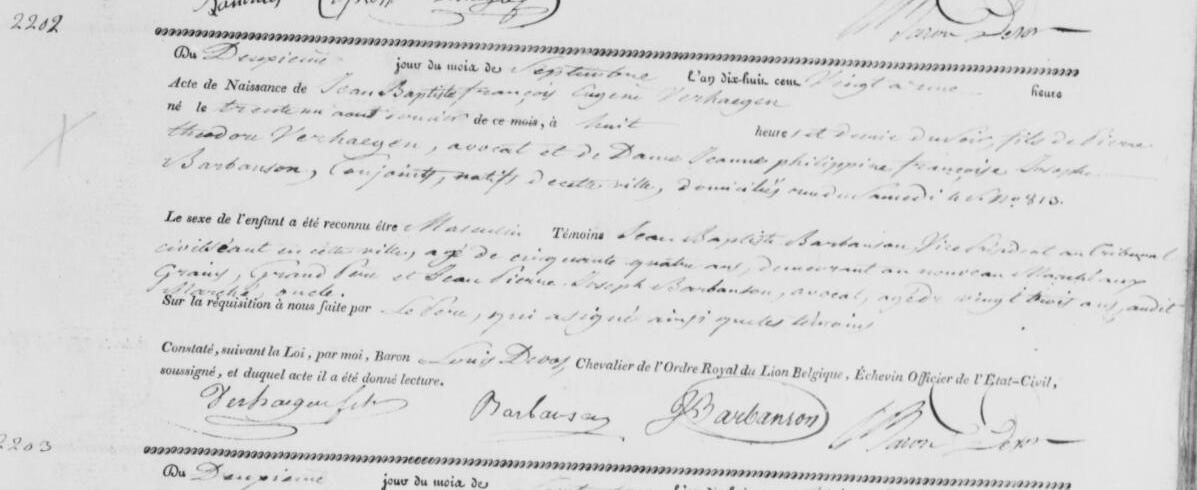 2202
Baron Devos
Du Deuxième jour du mois de Septembre l'an dix-huit cent Vingt à une heure
Acte de Naissance de Jean Baptiste françois Eugène Verhaegen
né le trente un aout dernier de ce mois, à huit heures et demie du soir, fils de Pierre
théodore Verhaegen, avocat et de Dame Jeanne philippine françoise Josephe
Barbanson, Conjoints, natifs de cette ville, domiciliés rue du Samedi No 813.
Le sexe de l'enfant a été reconnu être Masculin Témoins Jean Baptiste Barbanson Vice Président au tribunal
civil séant en cette ville, agé de cinquante quatre ans, demeurant au nouveau Marché aux
Grains, Grand Père et Jean Pierre Joseph Barbanson, avocat, agé de vingt trois ans, audit
Marché, oncle.
Sur la réquisition à nous faite par Le Père, qui a signé ainsi que les témoins
Constaté, suivant la Loi, par moi, Baron Louis Devos, Chevalier de l'Ordre Royal du Lion Belgique, Échevin Officier de l'État-Civil,
soussigné, et duquel acte il a été donné lecture.
Verhaegen fils Barbanson JBarbanson Baron Devos
2203
Du Deuxième jour du mois de